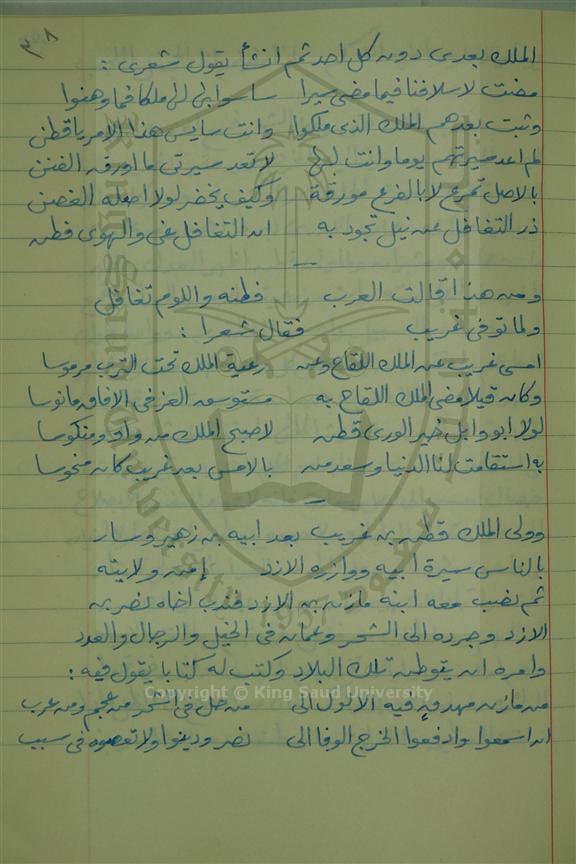 ٣٨
الملك بعدى دون كل احد ثم انشأ يقول شعرى :
مضت لاسلافنا فيما مضى سيرا ساسوا بها ملكا فما وهنوا
وثبت بعدهم الملك الذى ملكوا وانت سايس هذا الامر يا قطن
لم اعد سيرتهم يوما وانت لها لا تعد سيرتى ما اورق الفنن
بالاصل تمرع لا بالفرع مورقة وكيف يخضر لولا اصله الغصن
ذر التغافل عن نيل تجود به ان التغافل غى والهوى فطن
ومن هذا قالت العرب فطنه واللوم تغافل
ولما توفى غريب فقال شعرا :
امسى غريب عن الملك اللقاح وعن رعية الملك تحت الترب مرموسا
وكان قيلا مضى الملك اللقاح به مستوسق العز فى الافاق مانوسا
لولا ابو وابل خير الورى قطن لاصبح الملك منكوسا
به استقامت لنا الدنيا وسعد من بالامس بعد غريب كان منحوسا
وولى الملك قطن بن غريب بعد ابيه بن زهير وسار
بالناس سيرة ابيه ووازره الازد ولايته
ثم نصب معه ابنه مازن بن الازد فندب اخاه نصر بن
الازد وجرده الى الشحر وعمان فى الخيل والرجال والعدد
وامره ان يتوطن تلك البلاد وكتب له كتابا يقول فيه :
Copyright © King Saud University
من مازن فيه الى من حل فى الشحر من عجم ومن عرب
ان اسمعوا وادفعوا الخرج الوفا الى نصر ودينوا ولا تعصوه فى سبب